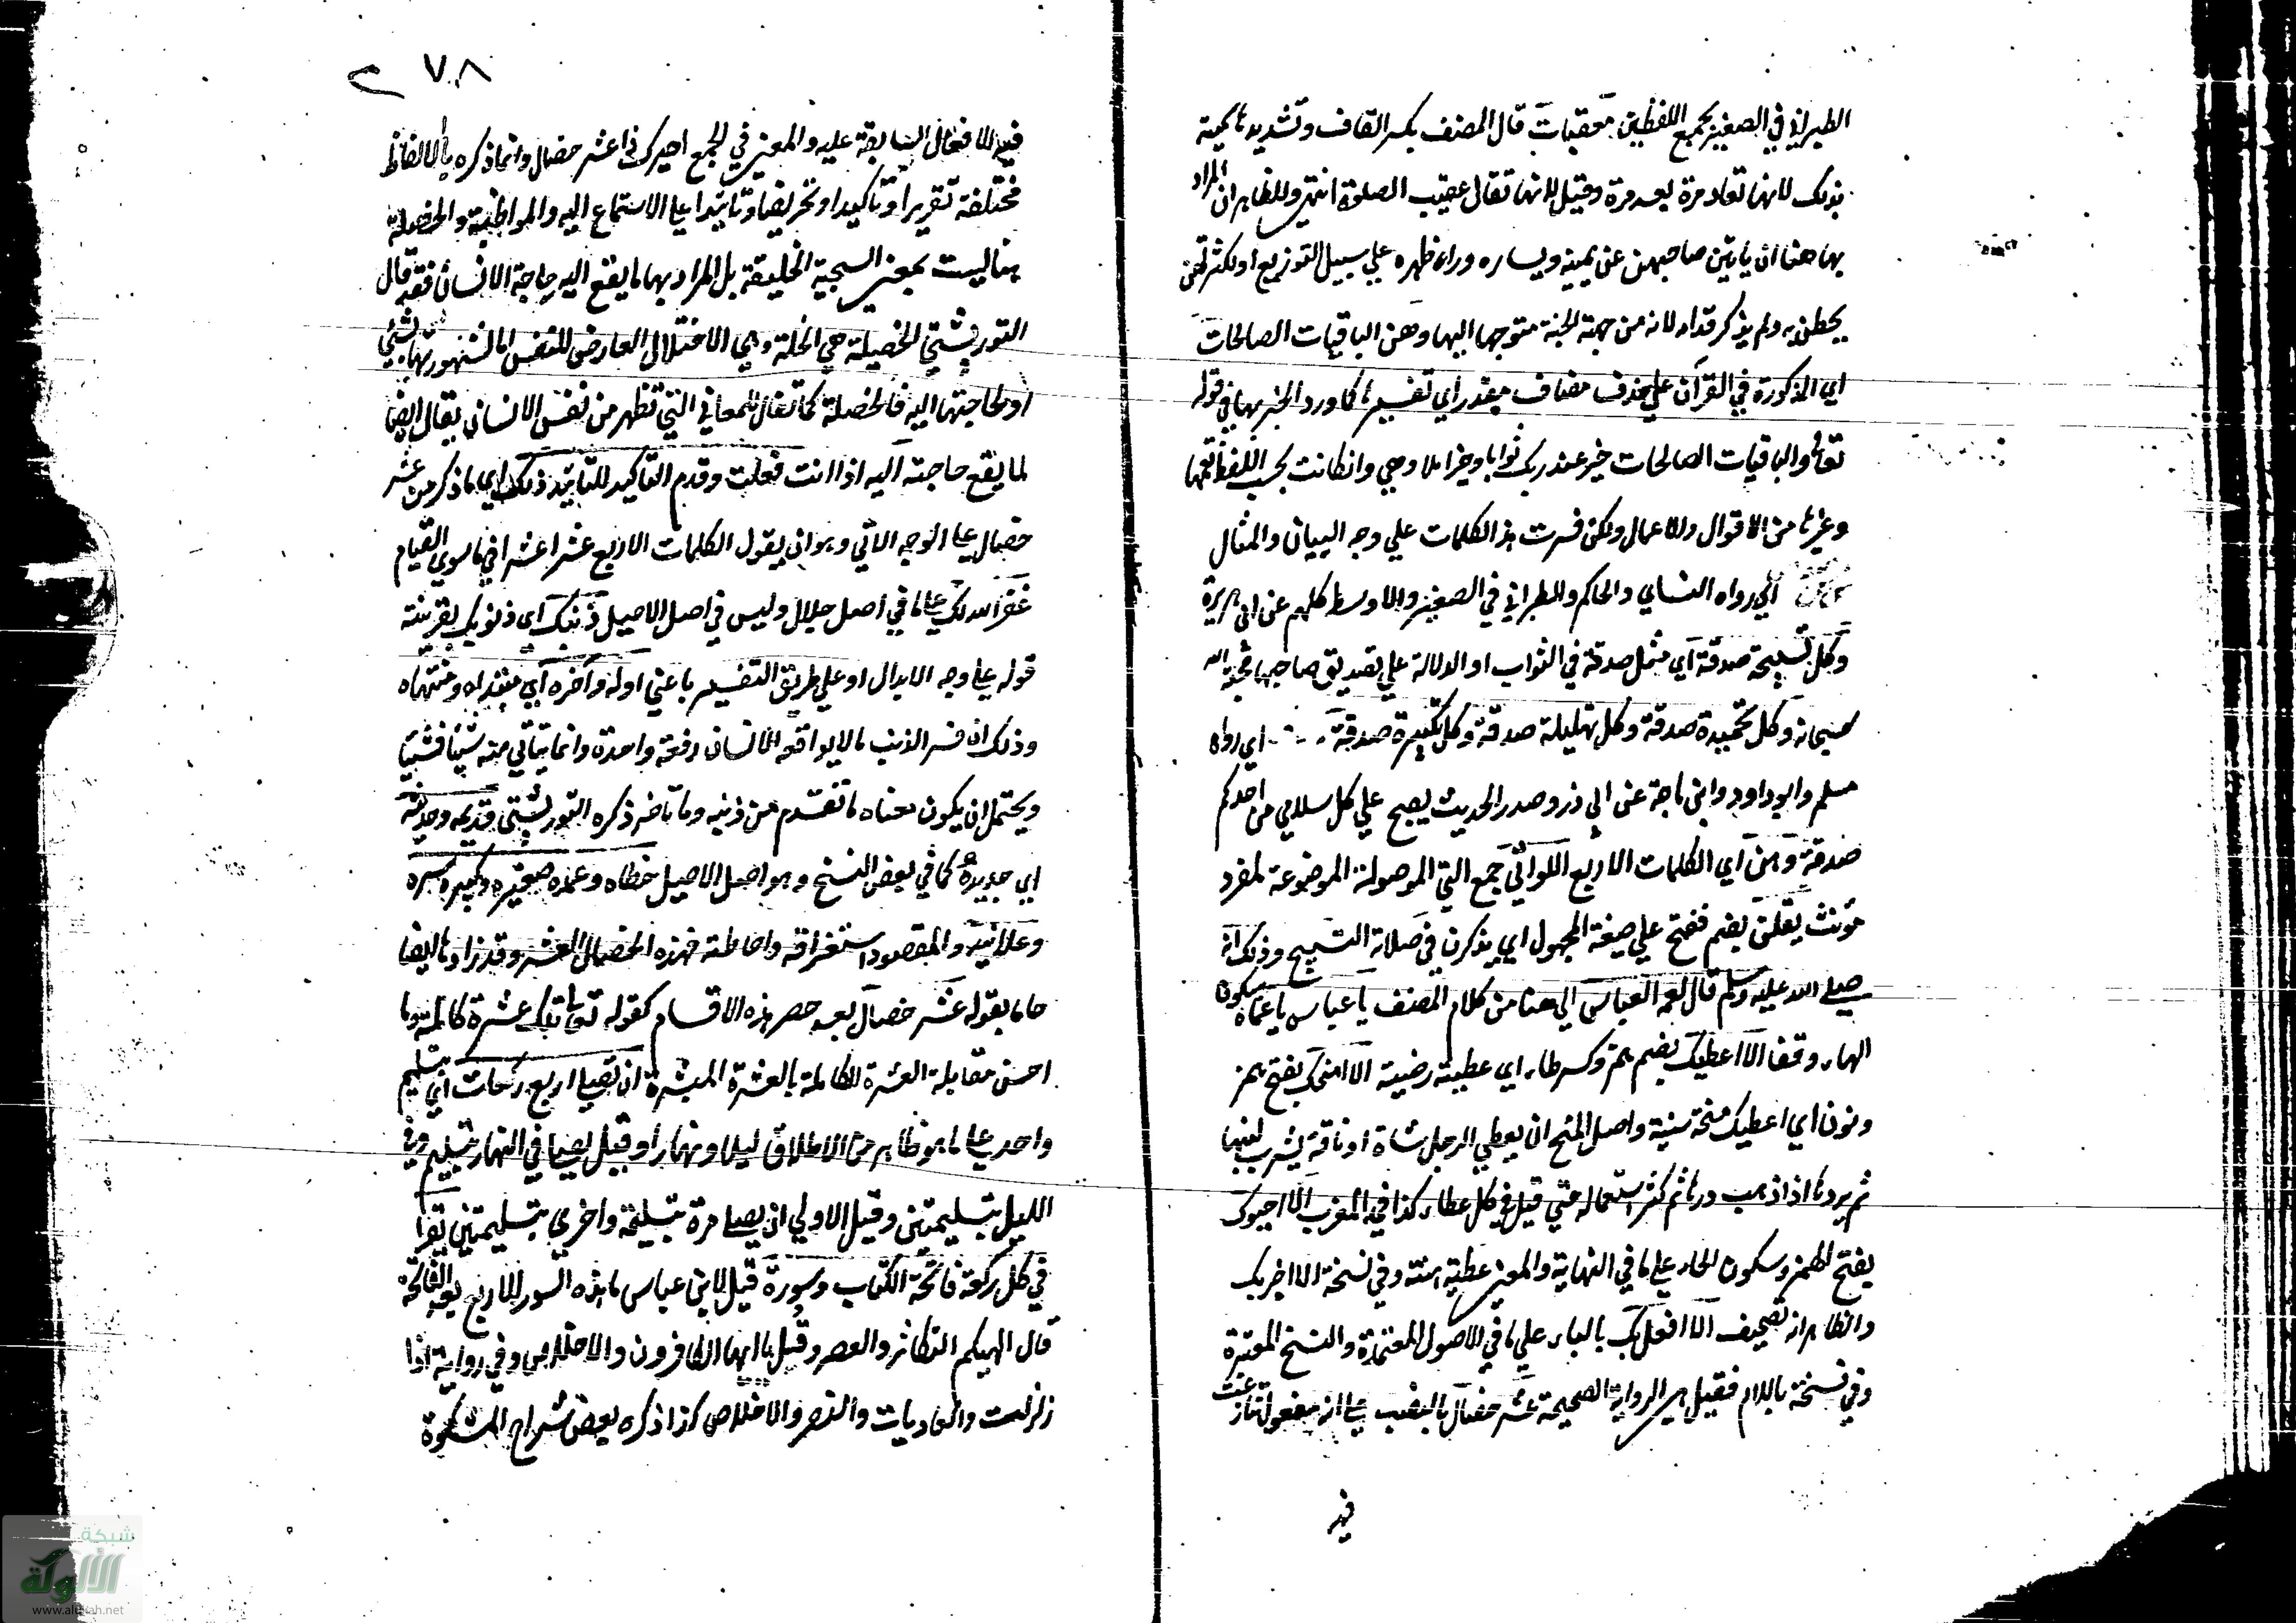 الطبراني في الصغير بجمع اللفظين معقبات قال المصنف بكسر القاف وتشديدها سميت
بذلك لانها تعاد مرة بعد مرة وقيل لانها تقال عقيب الصلوة انتهي والظاهر ان المراد
بها هنا ان ياتين صاحبهن عن يمينه ويساره وراء ظهره علي سبيل التوزيع او لكثرتهن
يحطن به ولم يذكر قدام لانه من جهة الجنة متوجها اليها وهن الباقيات الصالحات
اي المذكورة في القرآن علي حذف مضاف مقدر اي تفسيرها كما ورد الخبر بها في قوله
تعالى والباقيات الصالحات خير عند ربك ثوابا وخير املا وهي وان كانت بحسب اللفظ تعمها
وغيرها من الاقوال والاعمال ولكن فسرت بهذه الكلمات علي وجه البيان والمثال
اي رواه النساي والحاكم والطبراني في الصغير والاوسط كلهم عن ابي هريرة
وكل تسبيحة صدقة اي مثل صدقة في الثواب او الدلالة علي تصديق صاحبها محبة الله
سبحانه وكل تحميدة صدقة وكل تهليلة صدقة وكل تكبيرة صدقة اي رواه
مسلم وابو داود وابن ماجة عن ابي ذر وصدر الحديث يصبح علي كل سلامي من احدكم
صدقة وهن اي الكلمات الاربع اللواتي جمع التي الموصولة الموضوعة لمفرد
مؤنث يقلن بضم ففتح علي صيغة المجهول اي يذكرن في صلاة التسبيح وذلك انه
صلى الله عليه وسلم قال لعمه العباس الي هنا من كلام المصنف يا عباس يا عماه بسكون
الهاء وقفا الا اعطيك بضم همز وكسر طاء اي عطية رضية الا امنحك بفتح همز
ونون اي اعطيك منحة سنية واصل المنح ان يعطي الرجل شاة او ناقة يشرب لبنها
ثم يردها اذا ذهب درها ثم كثر استعماله حتي قيل في كل عطاء كذا في المغرب الا احبوك
بفتح الهمز وسكون الحاء علي ما في النهاية والمعني عطية منة وفي نسخة الا اخبرك
والظاهر انه تصحيف الا افعل بك بالباء علي ما في الاصول المعتمدة والنسخ المعتبرة
وفي نسخة باللام فقيل هي الرواية الصحيحة عشر خصال بالنصب علي انه مفعول تنازعت
فيه
٢٧٨
فيه الافعال السابقة عليه والمعني في الجمع اصيرك ذا عشر خصال وانما ذكره بالالفاظ
مختلفة تقريرا وتاكيدا وتحريضا وتابيدا علي الاستماع اليه والمواظبة والخصلة
هنا ليست بمعني السجية الخليقة بل المراد بها ما يقع اليه حاجة الانسان فقد قال
التوربشتي الخصيلة هي الخلة وهي الاختلال العارض للنفس اما لشهوتها بشيئ
او لحاجتها اليه فالخصلة كما تقال للمعاني التي تظهر من نفس الانسان يقال ايضا
لما يقع حاجته اليه اذا انت فعلت وقدم التاكيد للتابيد ذلك اي ما ذكر من عشر
خصال علي الوجه الاتي وهو ان يقول الكلمات الاربع عشرا عشرا فيما سوي القيام
غفر الله لك علي ما في اصل جلال وليس في اصل الاصيل ذنبك اي ذنوبك بقرينة
قوله علي وجه الابدال او علي طريق التفسير باعني اوله وآخره اي مبتداه ومنتهاه
وذلك ان فسر الذنب مالا يواقعه الانسان دفعة واحدة وانما يتاتي منه شيئا فشيئا
ويحتمل ان يكون معناه ما تقدم من ذنبه وما تاخر ذكره التوربشتي قديمه وحديثه
اي جديده كما في بعض النسخ وهو اصل الاصيل خطاه وعمده صغيره وكبيره سره
وعلانيته والمقصود استغراقه واحاطته فهذه الخصال العشر وقد زادها ايضا
حاما بقوله عشر خصال بعد حصر هذه الاقسام كقوله تعالى تلك عشرة كاملة وما
احسن مقابلة العشرة الكاملة بالعشرة المبشرة ان تصلي اربع ركعات اي بتسليم
واحد علي ما هو ظاهر من الاطلاق ليلا ونهارا وقيل يصلي في النهار بتسليم وفي
الليل بتسليمتين وقيل الاولي ان يصلي مرة بتسليمة واخري بتسليمتين تقرا
في كل ركعة فاتحة الكتاب وسورة قيل لابن عباس ما هذه السور الاربع بعد الفاتحة
قال الهيكم التكاثر والعصر وقل يا ايها الكافرون والاخلاص وفي رواية اذا
زلزلت والعاديات والنصر والاخلاص كذا ذكره بعض شراح المشكوة
شبكة
الألوكة
www.alukah.net